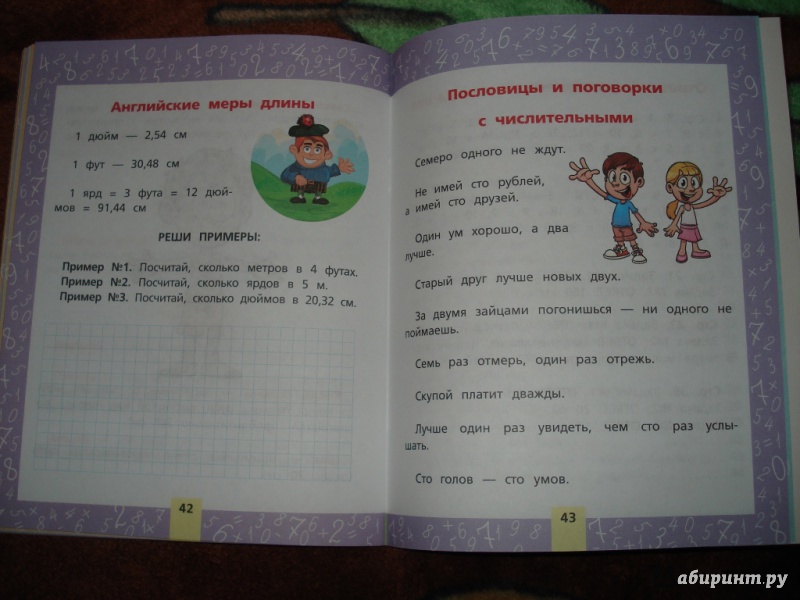 Английские меры длины
1 дюйм — 2,54 см
1 фут — 30,48 см
1 ярд = 3 фута = 12 дюй-
мов = 91,44 см
РЕШИ ПРИМЕРЫ:
Пример №1. Посчитай, сколько метров в 4 футах.
Пример №2. Посчитай, сколько ярдов в 5 м.
Пример №3. Посчитай, сколько дюймов в 20,32 см.
42
Пословицы и поговорки
с числительными
Семеро одного не ждут.
Не имей сто рублей,
а имей сто друзей.
Один ум хорошо, а два
лучше.
Старый друг лучше новых двух.
За двумя зайцами погонишься — ни одного не
поймаешь.
Семь раз отмерь, один раз отрежь.
Скупой платит дважды.
Лучше один раз увидеть, чем сто раз услы-
шать.
Сто голов — сто умов.
43
абиринт.ру